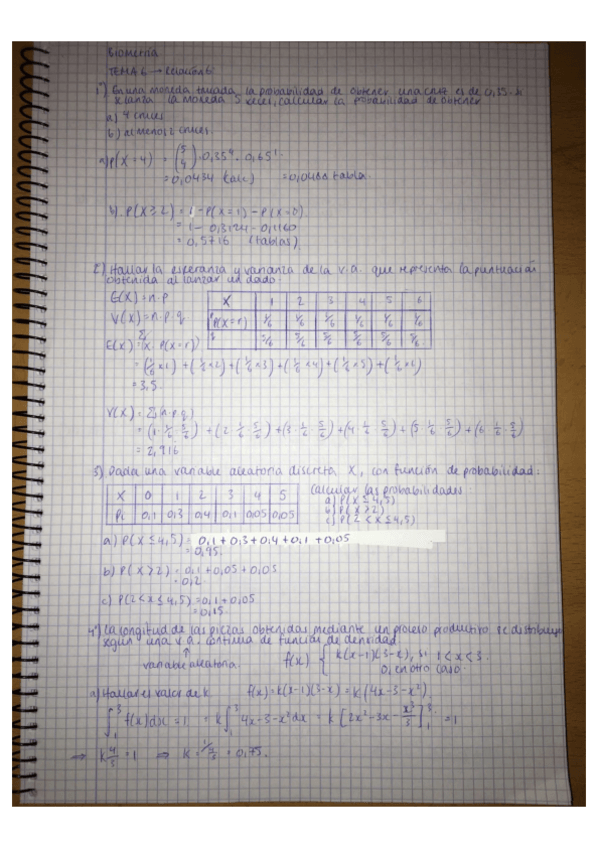 Biometría
TEMA 6 → Relación 6
1º) En una moneda trucada la probabilidad de obtener una cruz es de 0,35. Si
se lanza la moneda 5 veces, calcular la probabilidad de obtener
a) 4 cruces
b) al menos 2 cruces
a) P(X = 4) = (5 4) · 0,35⁴ · 0,65¹ =
= 0,0434 (calc) = 0,0488 tabla.
b). P(X ≥ 2) = 1 - P(X = 1) - P(X = 0)
= 1 - 0,3124 - 0,1160
= 0,5716 (tablas)
2) Hallar la esperanza y varianza de la v.a. que representa la puntuación
obtenida al lanzar un dado.
E(X) = n·p
V(X) = n·p·q
X 1 2 3 4 5 6
P(X=r) 1/6 1/6 1/6 1/6 1/6 1/6
5/6 5/6 5/6 5/6 5/6 5/6
E(X) = Σ x · P(x=r)
= (1/6 × 1) + (1/6 × 2) + (1/6 × 3) + (1/6 × 4) + (1/6 × 5) + (1/6 × 6)
= 3,5.
V(X) = Σ(n·p·q)
= (1 · 1/6 · 5/6) + (2 · 1/6 · 5/6) + (3 · 1/6 · 5/6) + (4 · 1/6 · 5/6) + (5 · 1/6 · 5/6) + (6 · 1/6 · 5/6)
= 2,916
3) Dada una variable aleatoria discreta X, con función de probabilidad:
X 0 1 2 3 4 5
Pi 0,1 0,3 0,4 0,1 0,05 0,05
Calcular las probabilidades
a) P(X ≤ 4,5)
b) P(X > 2)
c) P(2 < X ≤ 4,5)
a) P(X ≤ 4,5) = 0,1 + 0,3 + 0,4 + 0,1 + 0,05
= 0,95.
b) P(X > 2) = 0,1 + 0,05 + 0,05
= 0,2
c) P(2 < X ≤ 4,5) = 0,1 + 0,05
= 0,15
4º) La longitud de las piezas obtenidas mediante un proceso productivo se distribuye
según una v.a. continua de función de densidad
↑
variable aleatoria.
f(x) { k(x-1)(3-x), si 1 < x < 3
0, en otro caso.
a) Hallar el valor de k f(x) = k(x-1)(3-x) = k(4x - 3 - x²)
∫₁³ f(x)dx = 1 = k ∫₁³ 4x - 3 - x² dx = k [2x² - 3x - x³/3]₁³ = 1
⇒ k 4/3 = 1 ⇒ k = 0,75.